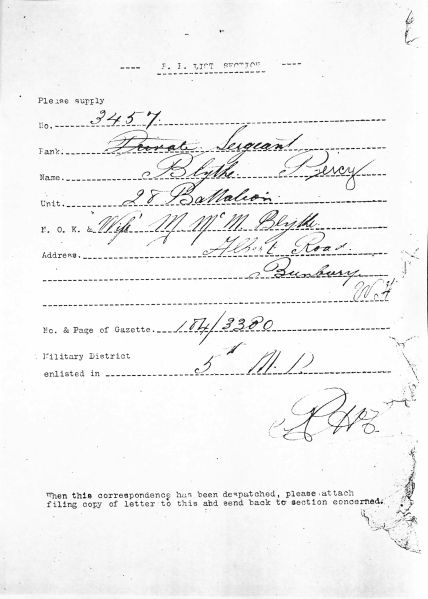 ---- P. I. LIST SECTION ----
Please supply
No. 3457.
Rank. Private Sergeant
Name. Blythe Percy
Unit. 28 Battalion
N. O. K. & "Wife" M Mc M. Blythe
Address. Albert Road
Bunbury
W.A
No. & Page of Gazette. 104/3380
Military District
enlisted in 5th M. D
When this correspondence has been despatched, please attach
filing copy of letter to this and send back to section concerned.